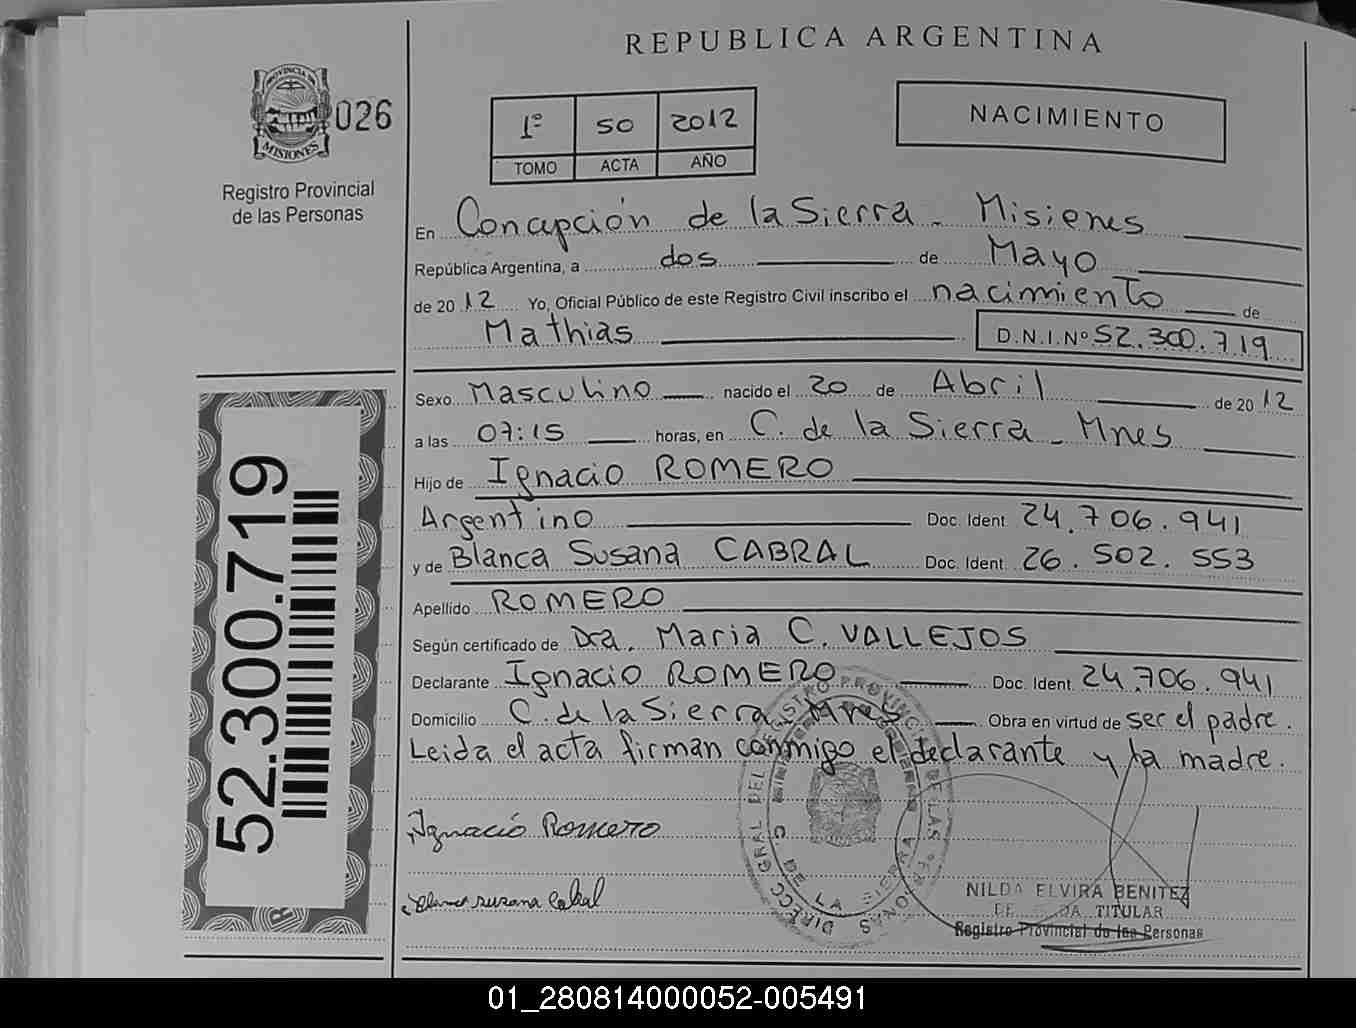 REPUBLICA ARGENTINA
PROVINCIA DE
MISIONES
026
Registro Provincial
de las Personas
1º 50 2012
TOMO ACTA AÑO
NACIMIENTO
En Concepción de la Sierra - Misiones
República Argentina, a dos de Mayo
de 2012 Yo, Oficial Público de este Registro Civil inscribo el nacimiento de
Mathias D.N.I.Nº 52.300.719
Sexo Masculino nacido el 20 de Abril de 2012
a las 07:15 horas, en C. de la Sierra - Mnes
Hijo de Ignacio ROMERO
Argentino Doc. Ident. 24.706.941
y de Blanca Susana CABRAL Doc. Ident. 26.502.553
Apellido ROMERO
Según certificado de Dra. Maria C. VALLEJOS
Declarante Ignacio ROMERO Doc. Ident. 24.706.941
Domicilio C. de la Sierra - Mnes Obra en virtud de ser el padre.
Leida el acta firman conmigo el declarante y la madre.
52.300.719
Ignacio Romero
Blanca Susana Cabral
DIRECC GRAL DEL REGISTRO PROVINCIAL DE LAS PERSONAS
C. DE LA SIERRA
NILDA ELVIRA BENITEZ
TITULAR
Registro Provincial de las Personas
01_280814000052-005491